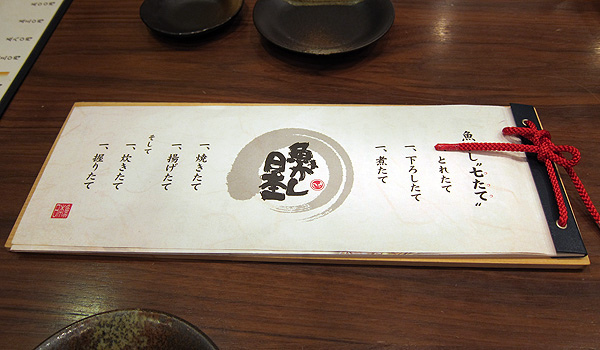 魚がし“七たて”
一、とれたて
一、下ろしたて
一、煮たて
魚がし
日本一
一、焼きたて
一、揚げたて
そして
一、炊きたて
一、握りたて